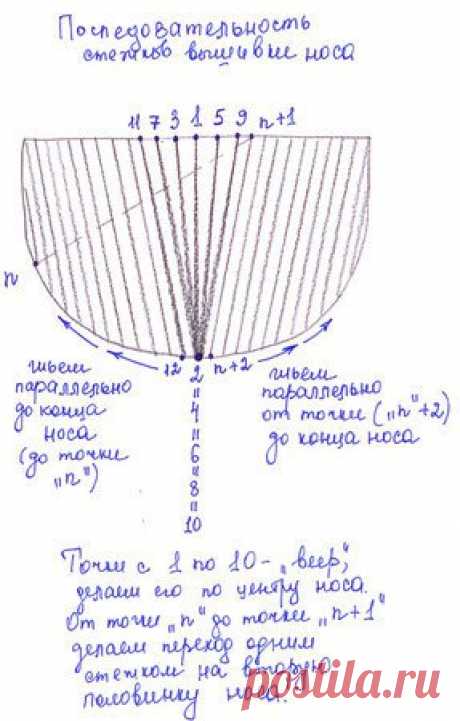 Последовательность
стежков вышивки носа
11 7 3 1 5 9 n+1
n
12 2 n+2
шьем
параллельно
до конца
носа
(до точки
„n")
"
4
"
6
"
8
"
10
шьем
параллельно
от точки („n"+2)
до конца носа
Точки с 1 по 10 - „веер",
делаем его по центру носа.
От точки „n" до точки „n+1"
делаем переход одним
стежком на вторую
половинку носа.
postila.ru